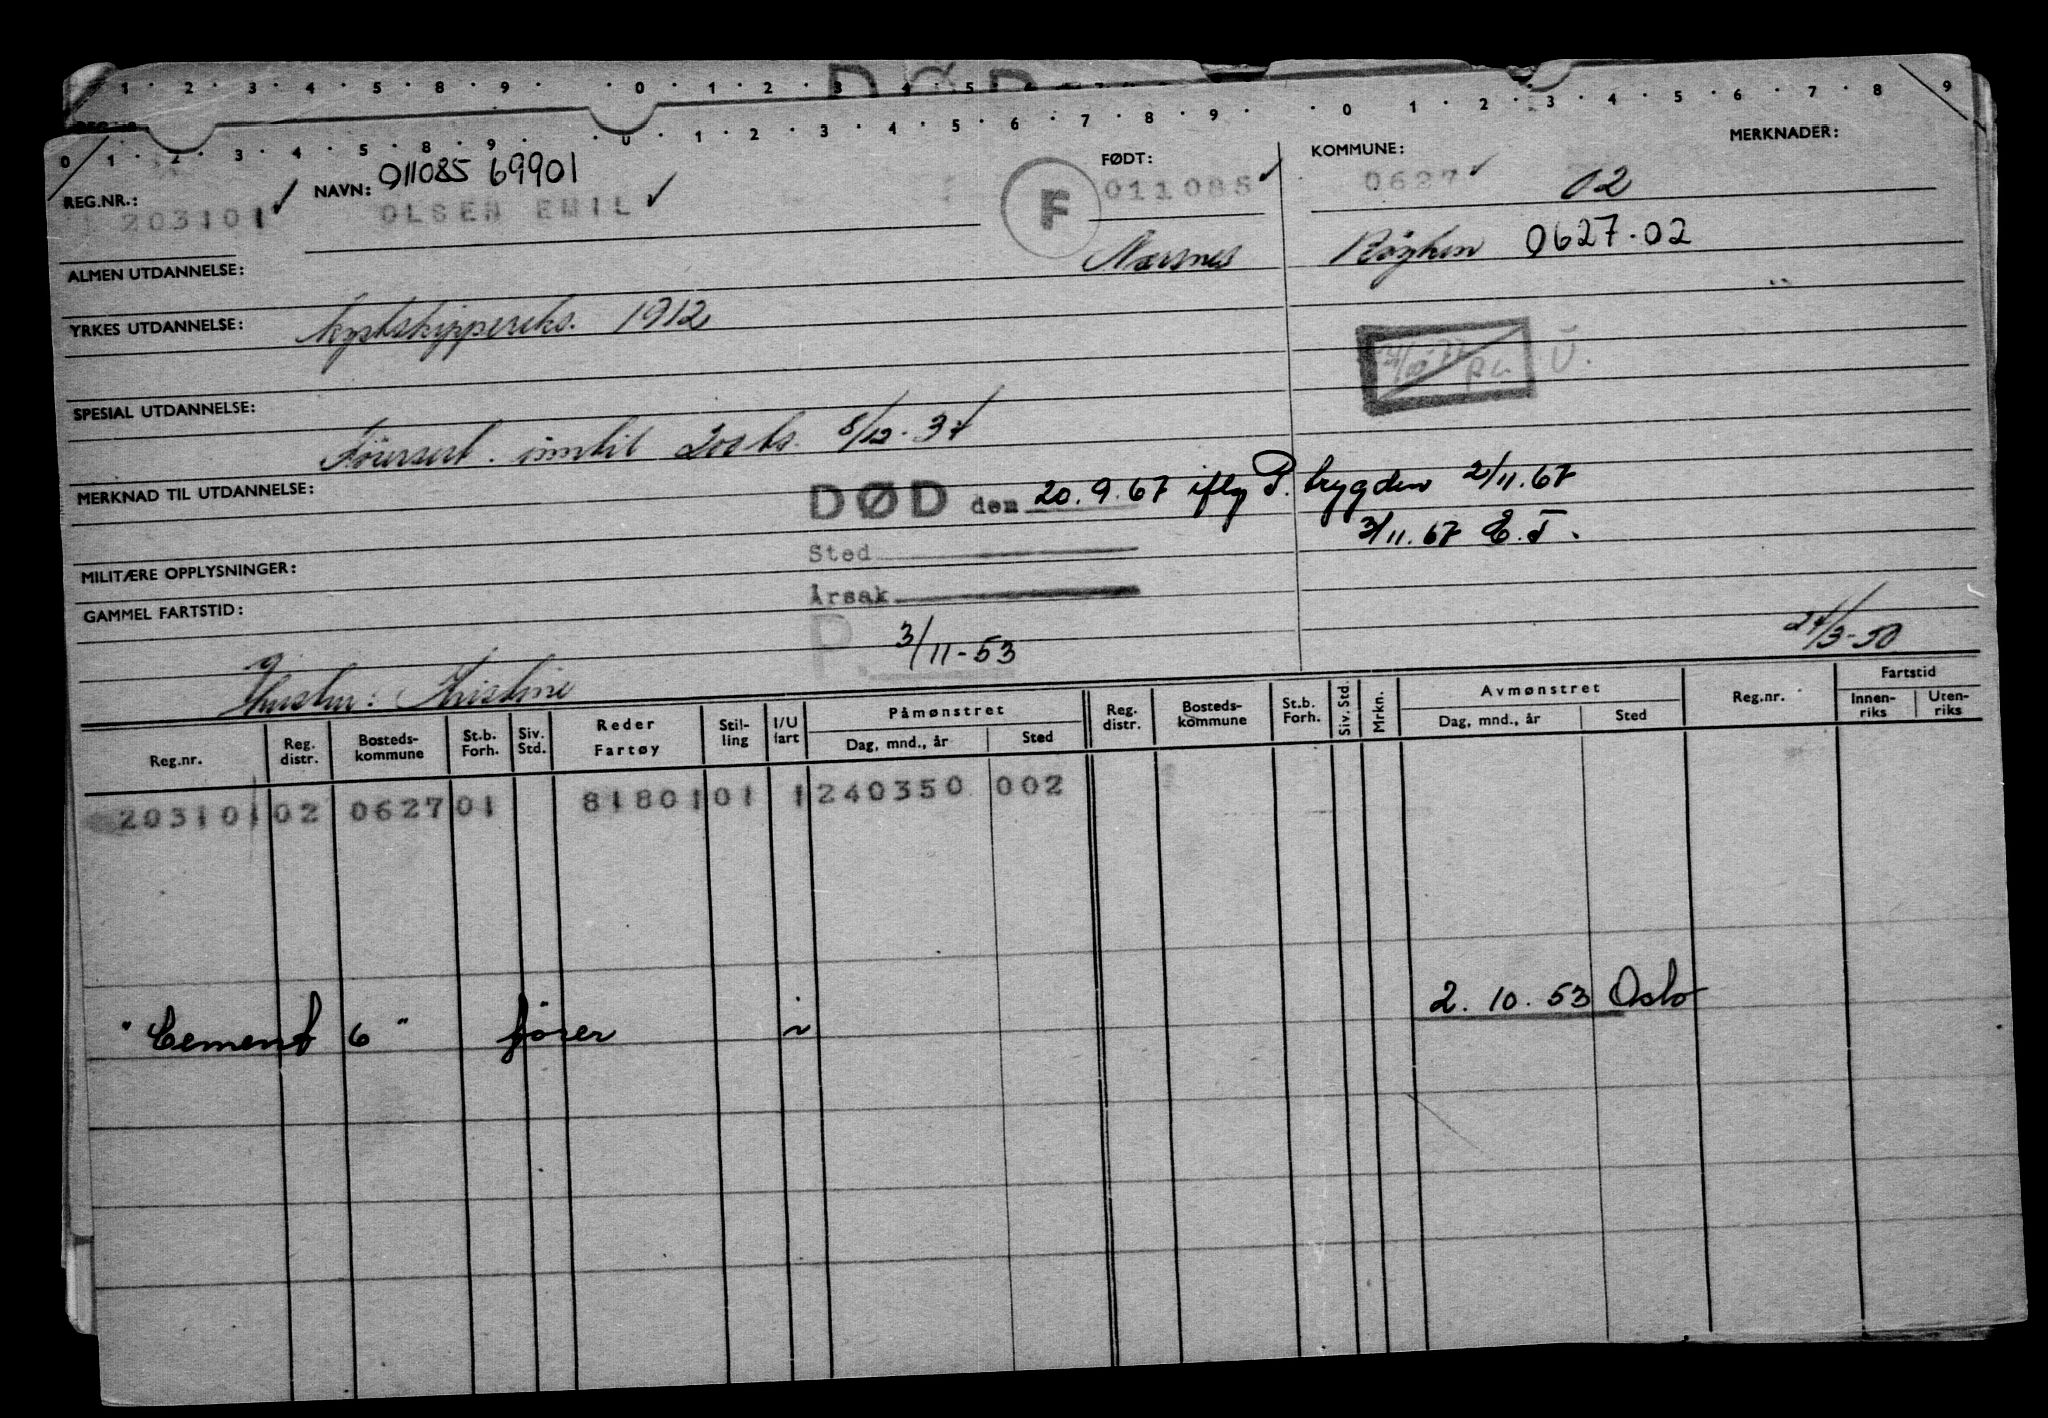 1 · 2 · 3 · 4 · 5 · 8 · 9 · · 0 · 1 · 2 · 3 · 4 · 5
DØD
0 1 · 2 · 3 · 4 · 5 · 8 · 9 · · 0 · 1 · 2 · 3 · 4 · 5 · 6 · 7 · 8 · 9 · · 0 · 1 · 2 · 3 · 4 · 5 · 6 · 7 · 8 · 9
MERKNADER:
REG.NR.: 203101 ✓
NAVN: 011085 69901
OLSEN EMIL ✓
F
FØDT: 011085 ✓
KOMMUNE: 0627 ✓ 02
Nærsnes
Røyken 0627.02
ALMEN UTDANNELSE:
YRKES UTDANNELSE: Kystskippereks. 1912
SPESIAL UTDANNELSE:
Ü.
Førersert. inntil 200 ts. 8/12-37
MERKNAD TIL UTDANNELSE:
DØD den 20.9.67 iflg P.trygden 2/11.67
3/11.67 E.T.
Sted
Årsak
MILITÆRE OPPLYSNINGER:
GAMMEL FARTSTID:
P. 3/11-53
24/3-50
Hustru: Kristine
Reg.nr. Reg. distr. Bosteds-kommune St.b. Forh. Siv. Std. Reder Fartøy Stil-ling I/U fart Påmønstret Dag, mnd., år Sted Reg. distr. Bosteds-kommune St.b. Forh. Siv. Std. Mrkn. Avmønstret Dag, mnd., år Sted Reg.nr. Fartstid Innen-riks Uten-riks
203101 02 0627 01 81801 01 1 240350 002
2.10.53 Oslo
"Cement 6" fører i